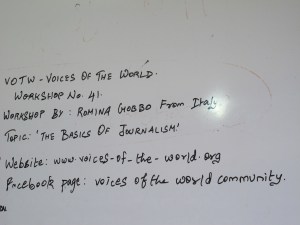 VOTW - VOICES OF THE WORLD.
WORKSHOP No. 41.
WORKSHOP BY : ROMINA GOBBO From Italy
TOPIC: 'THE BASICS OF JOURNALISM'
Website: www.voices-of-the-world.org
Facebook page: voices of the world community.